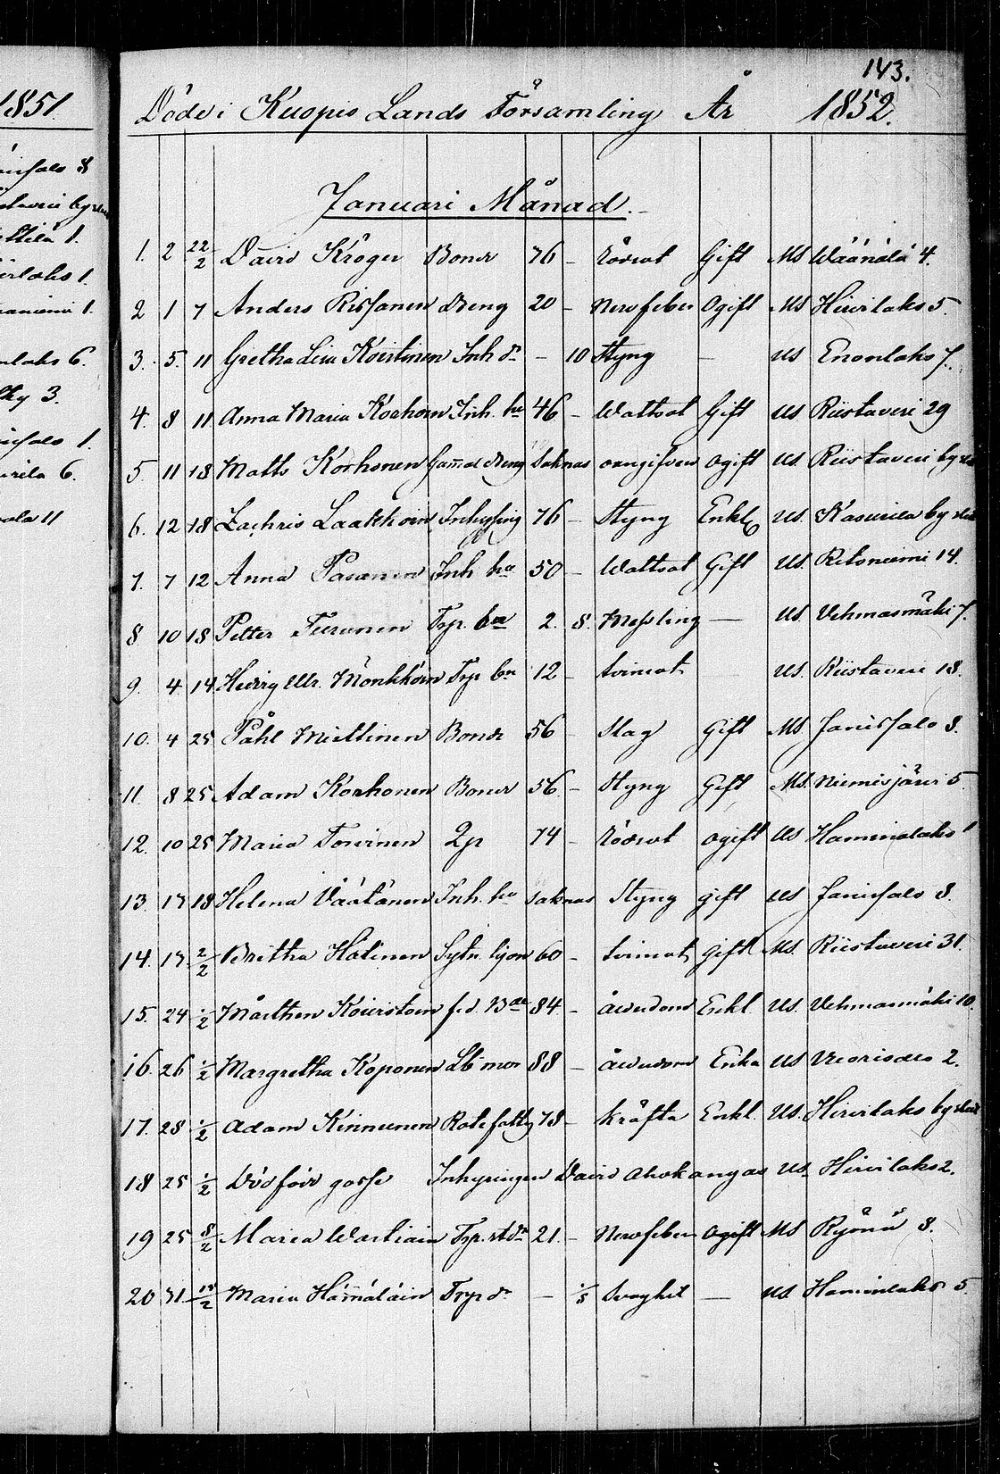 1851.
143.
Döde i Kuopio Lands Församling År 1852.
Januari Månad.
1. 2 22/2 David Kröger Bonde 76 - Rödsot Gift MS Wäänälä 4.
2 1 7 Anders Rissanen dreng 20 - Nervfeber Ogift MS Hirvilaks 5.
3. 5. 11 Gretha Lisa Koistinen Inh dr - 10 Styng - US Enonlaks 7.
4. 8 11 Anna Maria Korhoin Inh. hu 46 - Wattsot Gift US Riistaveri 29
5 11 18 Matts Korhonen Gamal dreng saknas ogift US. Riistaveri by
6. 12 18 Zachris Laakkoin Inhyssing 76 - Styng Enkl US. Kasurila by
7. 7 12 Anna Pasanen Inh hu 50 - Wattsot Gift US. Ritoniemi 14.
8 10 18 Petter Turunen Trp. bn 2. 8. Messling - US. Vehmasmäki 7.
9. 4 14 Hedvig Ulr. Mönkköin Trp bn 12 - tvinsot US. Riistaveri 18.
10. 4 25 Påhl Miettinen Bonde 56 - Slag Gift MS. Jänissalo 8.
11. 8 25 Adam Korhonen Bonde 56. - Styng Gift MS. Niemisjärvi 5
12. 10 25 Maria Toivinen Qp 74 - Rödsot ogift US Haminalaks 1
13. 17 18 Helena Väätänen Inh. hu saknas Styng gift US Jänissalo 8.
14. 17 2/2 Britha Hätinen Sytn. 60 - tvinsot gift MS. Riistaveri 31.
15. 24 1/2 Mårthen Koiristoin 84 - ålderdom Enkl US. Vehmasmäki 10.
16. 26 1/2 Margretha Koponen 88 - ålderdom Enka US Vuorisalo 2.
17. 28 1/2 Adam Kinnunen Rotefattig 78 - kräfta Enkl. US. Hirvilaks by
18 25 1/2 Dödfödd gosse Inhysingen David Ahokangas US. Hirvilaks 2.
19 25 8/2 Maria Wartiain Trp. st dr 21. - Nervfeber Ogift MS Ryönä 8.
20 31 15/2 Maria Hämäläin Trp dr - 1/5 Svaghet - US Haminlaks 5.